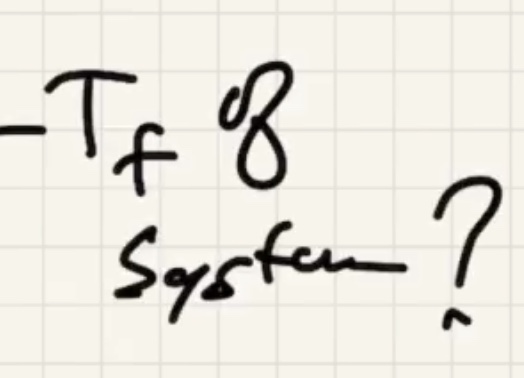 -Tf of
system ?